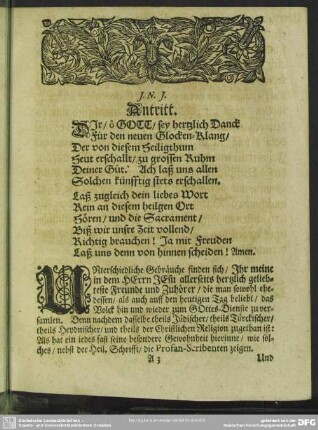 J. N. J.
Antritt.
DIr/ ô GOTT/ sey hertzlich Danck
Für den neuen Glocken-Klang/
Der von diesem Heiligthum
Heut erschallt/ zu grossen Ruhm
Deiner Güt. Ach laß uns allen
Solchen künfftig stets erschallen.
Laß zugleich dein liebes Wort
Rein an diesem heilgen Ort
Hören/ und die Sacrament/
Biß wir unsre Zeit vollend/
Richtig brauchen! Ja mit Freuden
Laß uns denn von hinnen scheiden! Amen.
UNterschiedliche Gebräuche finden sich/ Ihr meine
in dem HErrn JEsu allerseits hertzlich gelieb-
teste Freunde und Zuhörer/ die man sowohl ehe-
dessen/ als auch auff den heutigen Tag beliebt/ das
Volck hin und wieder zum GOttes-Dienste zu ver-
samlen. Denn nachdem dasselbe theils Jüdischer/ theils Türckischer/
theils Heydnischer/ und theils der Christlichen Religion zugethan ist:
Als hat ein iedes fast seine besondere Gewohnheit hierinne/ wie sol-
ches/ nebst der Heil. Schrifft/ die Profan-Scribenten zeigen.
A 3 Und